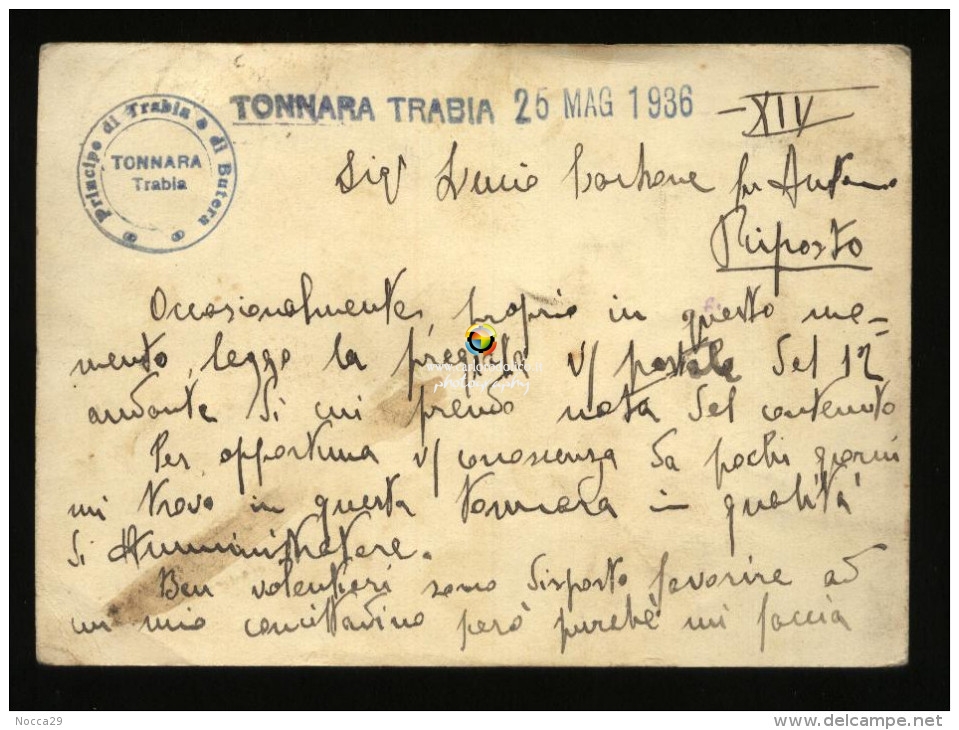 Principe di Trabia e di Butera
TONNARA
Trabia
TONNARA TRABIA 25 MAG 1936
XIV
Sigr Lucio fu Antonio
Riposto
Occasionalmente, proprio in questo mo=
mento, leggo la pregiata v/ postale del 12
andante di cui prendo nota del contenuto
Per opportuna v/ conoscenza da pochi giorni
mi trovo in questa tonnara in qualità
di Amministratore.
Ben volentieri sono disposto favorire ad
un mio concittadino però purchè mi faccia
photography
Nocca29
www.delcampe.net